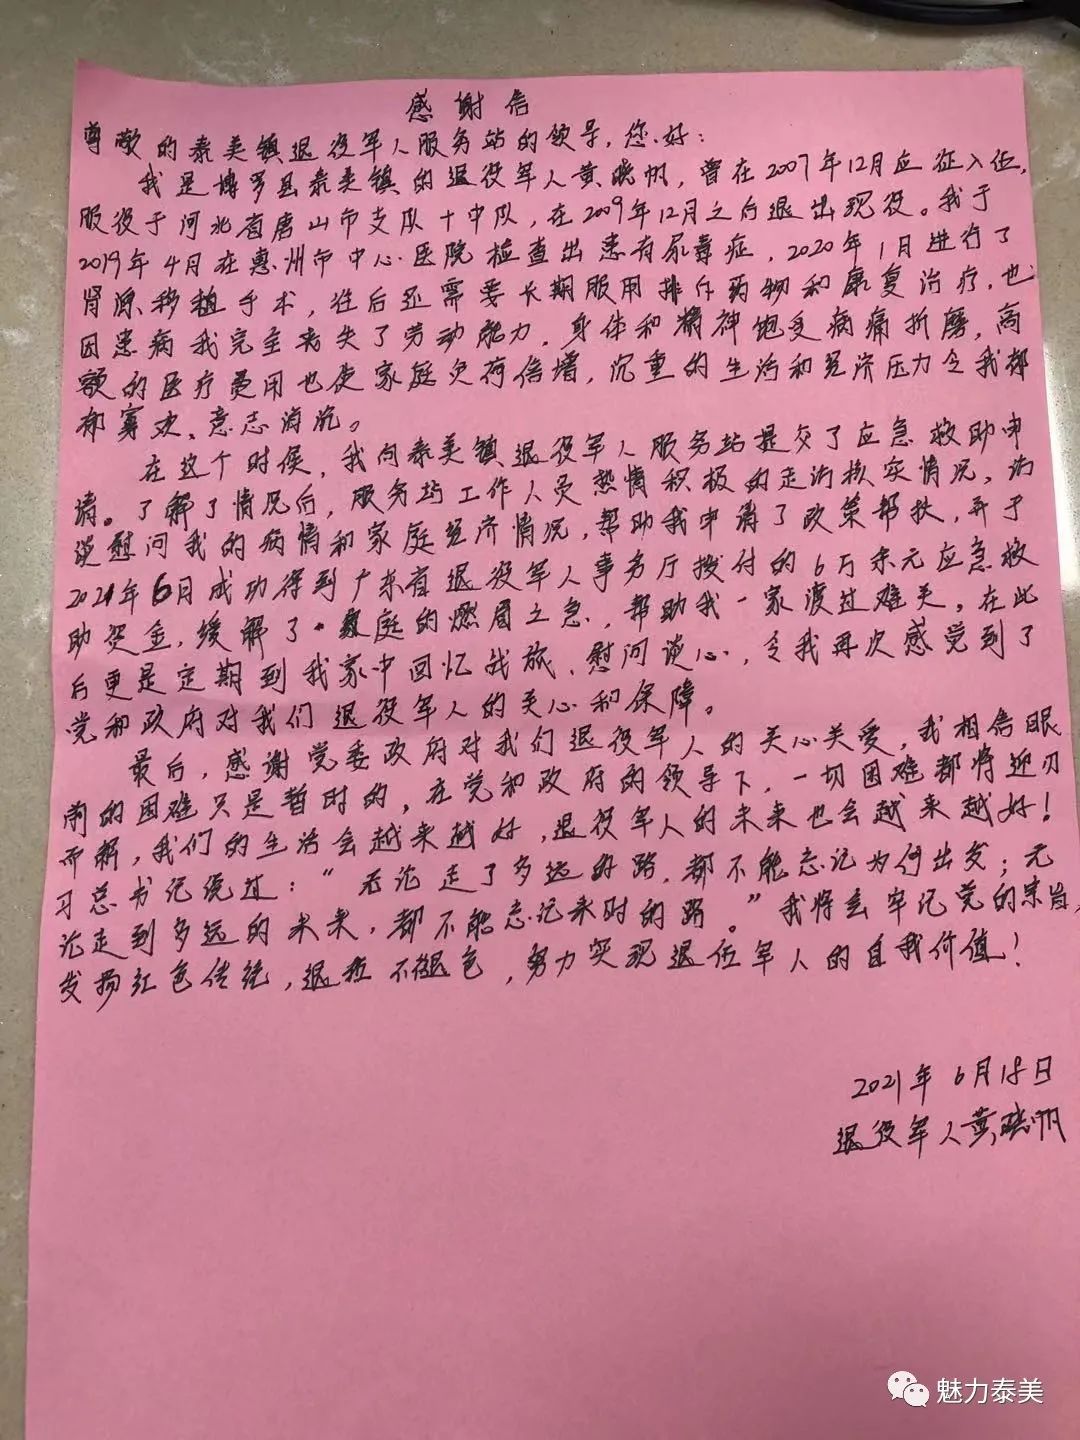 感谢信
尊敬的泰美镇退役军人服务站的领导,您好:
我是博罗县泰美镇的退役军人黄晓帆,曾在2007年12月应征入伍,
服役于河北省唐山市支队十中队,在2009年12月之后退出现役。我于
2019年4月在惠州市中心医院检查出患有尿毒症,2020年1月进行了
肾源移植手术,往后还需要长期服用排斥药物和康复治疗,也
因患病我完全丧失了劳动能力,身体和精神饱受病痛折磨,高
额的医疗费用也使家庭欠荷倍增,沉重的生活和经济压力令我郁
郁寡欢、意志消沉。
在这个时候,我向泰美镇退役军人服务站提交了应急救助申
请。了解了情况后,服务站工作人员热情积极的走访核实情况,访
谈慰问我的病情和家庭经济情况,帮助我申请了政策帮扶,并于
2021年6月成功得到广东省退役军人事务厅拨付的6万余元应急救
助资金,缓解了家庭的燃眉之急,帮助我一家渡过难关。在此
后更是定期到我家中回忆战旅、慰问谈心,令我再次感觉到了
党和政府对我们退役军人的关心和保障。
最后,感谢党委政府对我们退役军人的关心关爱,我相信眼
前的困难只是暂时的,在党和政府的领导下,一切困难都将迎刃
而解,我们的生活会越来越好,退役军人的未来也会越来越好!
习总书记说过:“无论走了多远的路,都不能忘记为何出发;无
论走到多远的未来,都不能忘记来时的路。”我将会牢记党的宗旨,
发扬红色传统,退伍不褪色,努力实现退伍军人的自我价值!
2021年6月18日
退役军人黄晓帆
魅力泰美